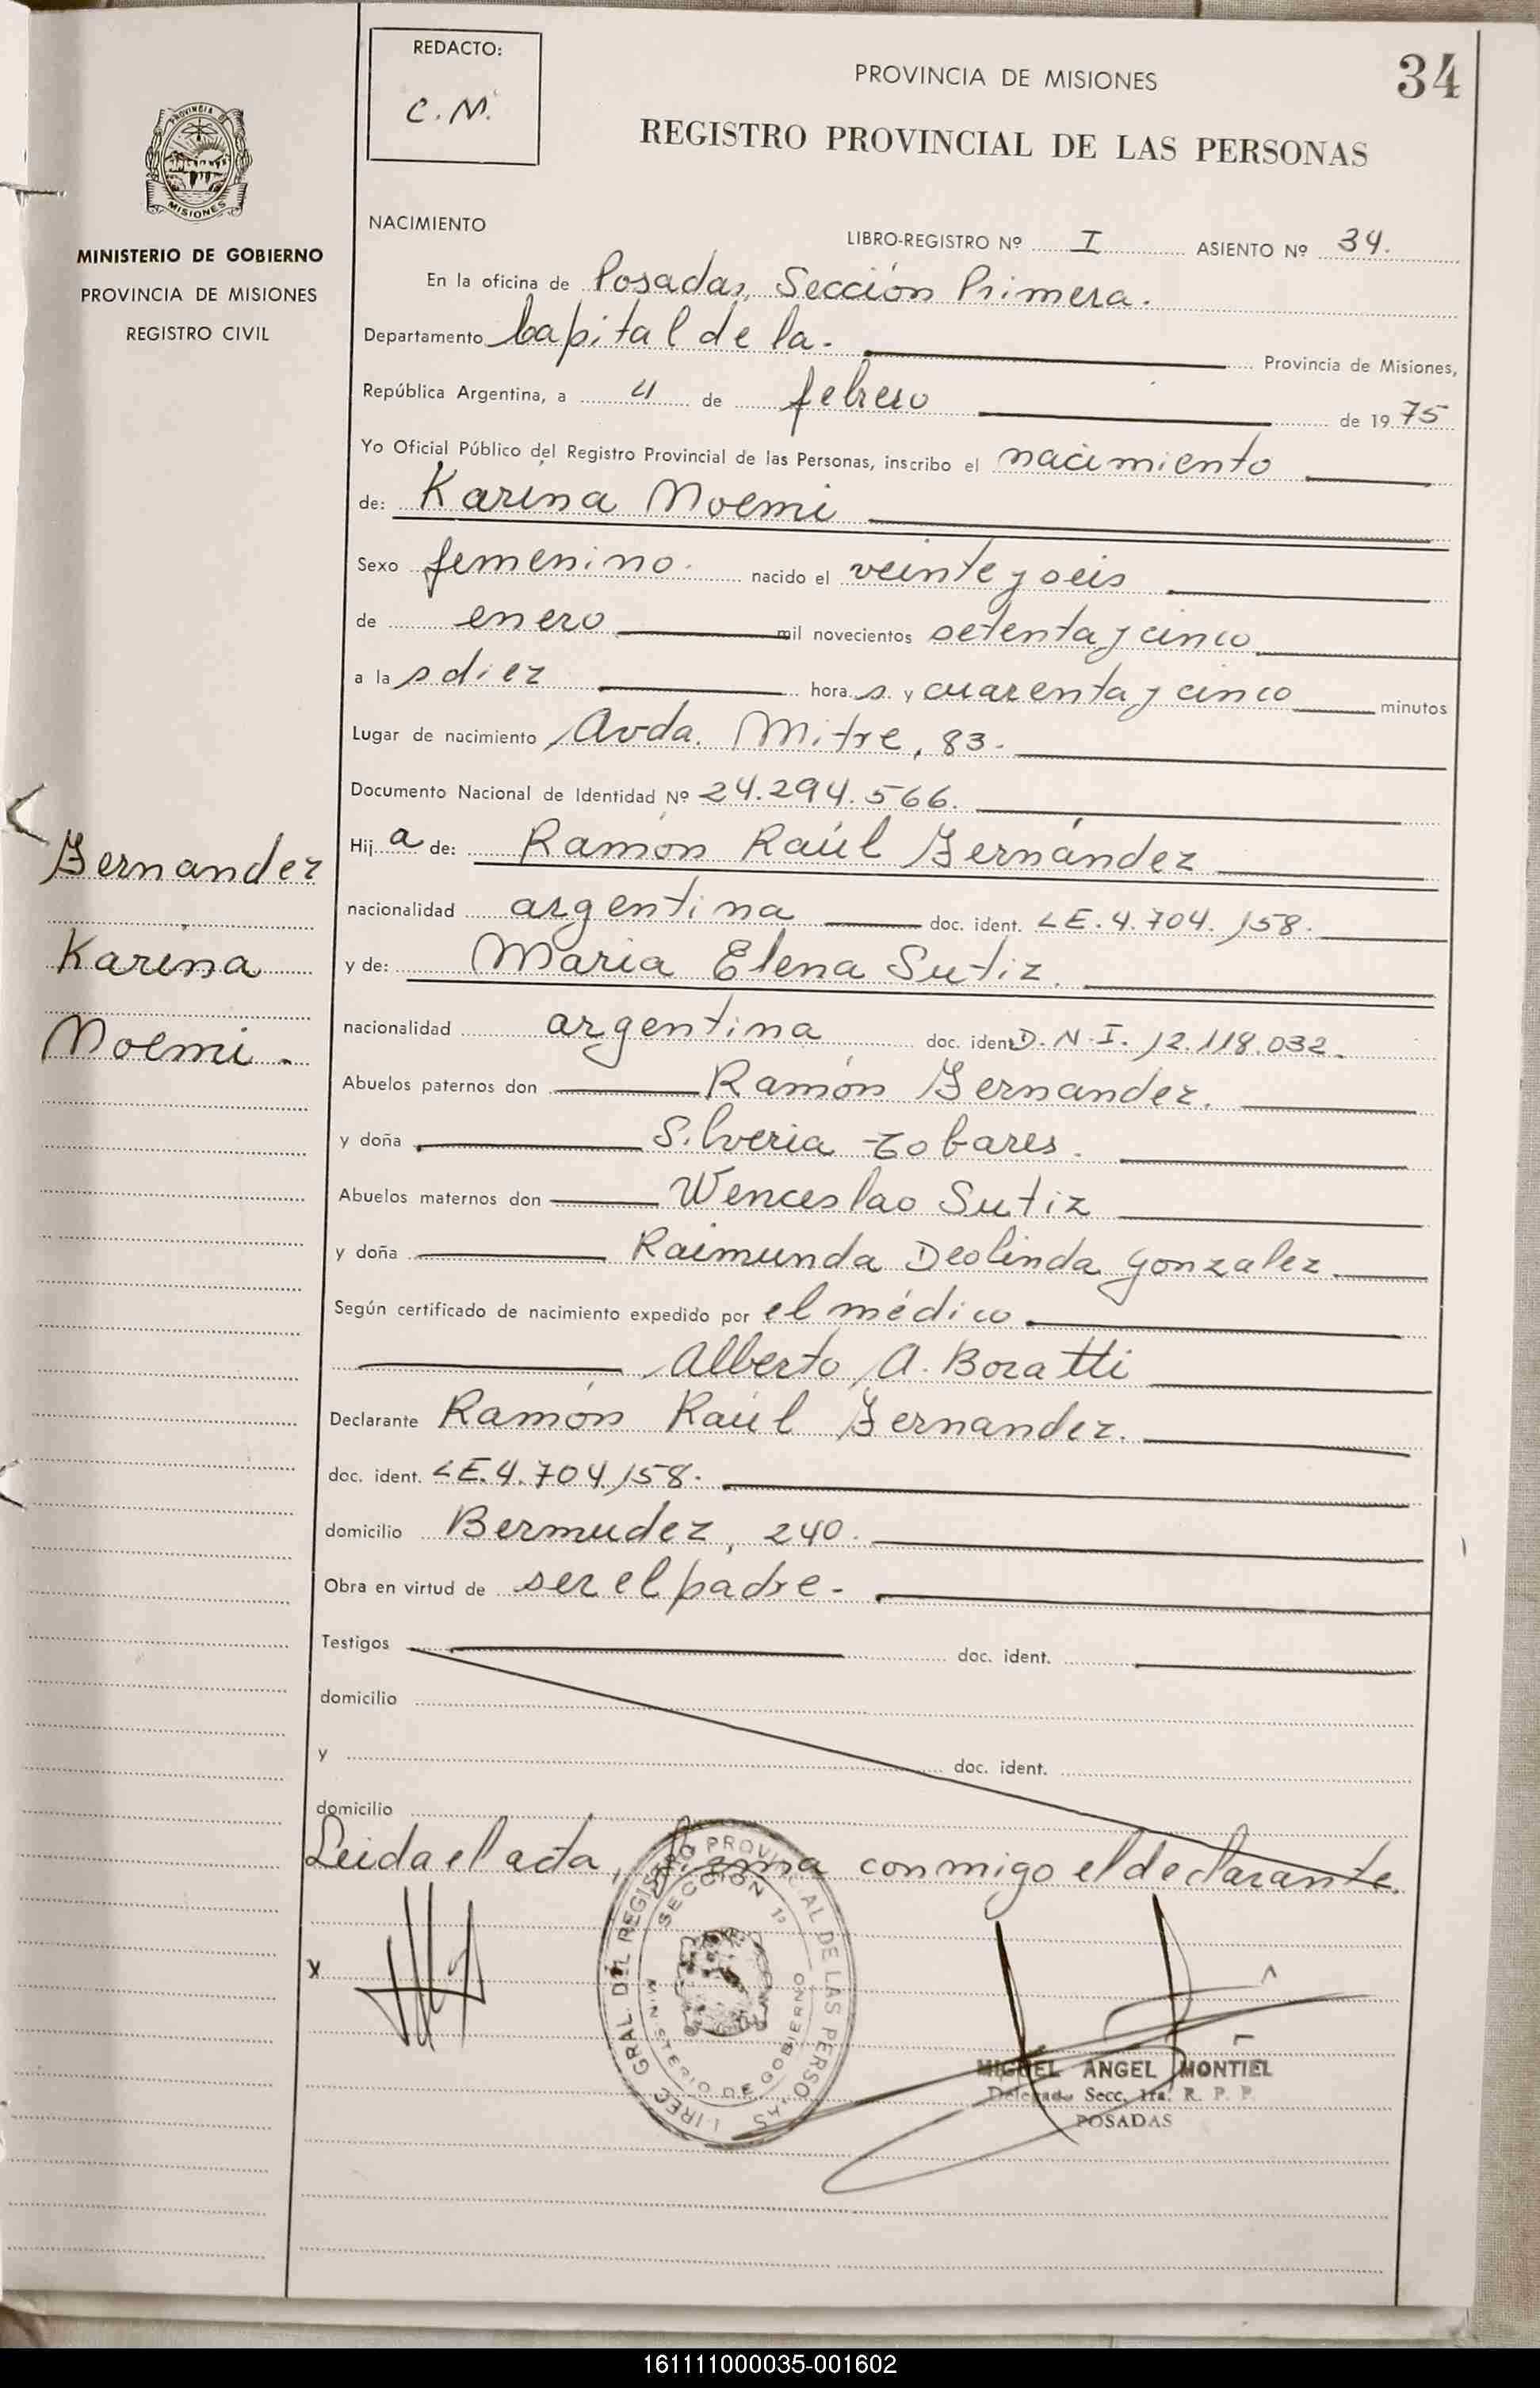 REDACTO:
C. N.
PROVINCIA DE MISIONES
34
REGISTRO PROVINCIAL DE LAS PERSONAS
PROVINCIA DE
MISIONES
MINISTERIO DE GOBIERNO
PROVINCIA DE MISIONES
REGISTRO CIVIL
NACIMIENTO
LIBRO-REGISTRO Nº I ASIENTO Nº 34.
En la oficina de Posadas, Sección Primera.
Departamento Capital de la. Provincia de Misiones,
República Argentina, a 4 de febrero de 1975
Yo Oficial Público del Registro Provincial de las Personas, inscribo el nacimiento
de: Karina Noemi
Sexo femenino. nacido el veinte y seis
de enero mil novecientos setenta y cinco
a la s diez hora s. y cuarenta y cinco minutos
Lugar de nacimiento Avda. Mitre, 83.
Documento Nacional de Identidad Nº 24.294.566.
Hij a de: Ramón Raúl Fernández
nacionalidad argentina doc. ident. LE. 4.704.158.
y de: Maria Elena Sutiz.
nacionalidad argentina doc. ident D.N.I. 12.118.032.
Abuelos paternos don Ramón Fernandez.
y doña Silveria Tobares.
Abuelos maternos don Wenceslao Sutiz
y doña Raimunda Deolinda Gonzalez.
Según certificado de nacimiento expedido por el médico
Alberto A. Boratti
Declarante Ramón Raúl Fernandez.
doc. ident. LE. 4.704.158.
domicilio Bermudez, 240.
Obra en virtud de ser el padre.
Testigos doc. ident.
domicilio
y doc. ident.
domicilio
Leida el acta, firma conmigo el declarante.
x
DIREC. GRAL. DEL REGISTRO PROVINCIAL DE LAS PERSONAS
SECCION 1ª
MINISTERIO DE GOBIERNO
MIGUEL ANGEL MONTIEL
Delegado Secc. 1ra. R. P. P.
POSADAS
Fernandez
Karina
Noemi.
161111000035-001602